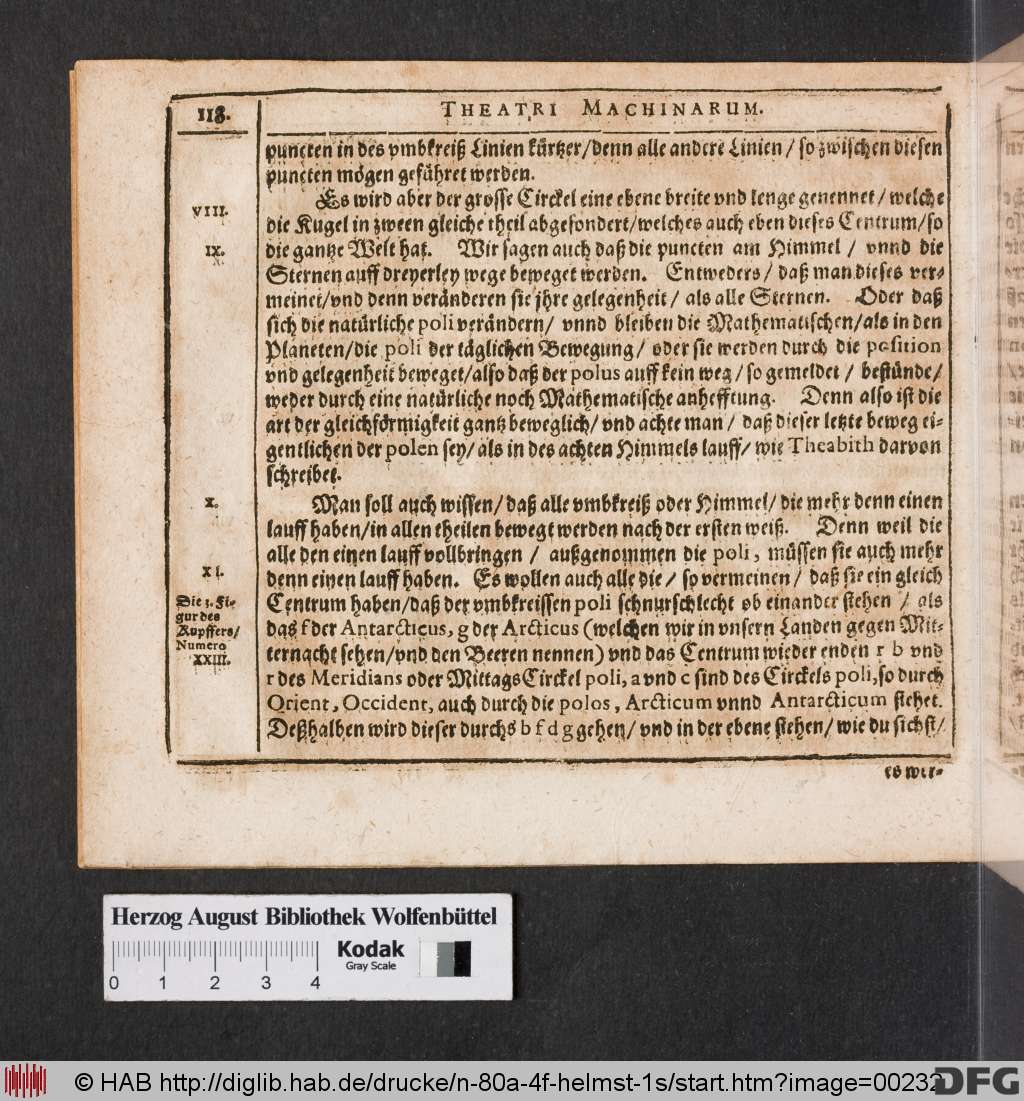 118.
THEATRI MACHINARUM.
puncten in des vmbkreiß Linien kürtzer/denn alle andere Linien / so zwischen diesen
puncten mögen geführet werden.
VIII.
Es wird aber der grosse Circkel eine ebene breite vnd lenge genennet / welche
die Kugel in zween gleiche theil abgesondert/welches auch eben dieses Centrum/so
IX.
die gantze Welt hat. Wir sagen auch daß die puncten am Himmel / vnnd die
Sternen auff dreyerley wege beweget werden. Entweders / daß man dieses ver-
meinet/vnd denn veränderen sie jhre gelegenheit / als alle Sternen. Oder daß
sich die natürliche poli verändern/ vnnd bleiben die Mathematischen/als in den
Planeten/die poli der täglichen Bewegung / oder sie werden durch die position
vnd gelegenheit beweget/also daß der polus auff kein weg / so gemeldet / bestünde/
weder durch eine natürliche noch Mathematische anhefftung. Denn also ist die
art der gleichförmigkeit gantz beweglich/ vnd achte man / daß dieser letzte beweg ei-
gentlichen der polen sey/ als in des achten Himmels lauff/ wie Theabith darvon
schreibet.
X.
Man soll auch wissen/ daß alle vmbkreiß oder Himmel/ die mehr denn einen
lauff haben/in allen theilen bewegt werden nach der ersten weiß. Denn weil die
alle den einen lauff vollbringen / außgenommen die poli, müssen sie auch mehr
XI.
denn einen lauff haben. Es wollen auch alle die / so vermeinen / daß sie ein gleich
Die 3. Fi-
gur des
Kupffers/
Numero
XXIII.
Centrum haben/daß der vmbkreissen poli schnurschlecht ob einander stehen / als
das f der Antarcticus, g der Arcticus (welchen wir in vnsern Landen gegen Mit-
ternacht sehen/vnd den Beeren nennen) vnd das Centrum wieder enden r b vnd
r des Meridians oder MittagsCirckel poli, a vnd c sind des Circkels poli, so durch
Orient, Occident, auch durch die polos, Arcticum vnnd Antarcticum stehet.
Deßhalben wird dieser durchs b f d g gehen/ vnd in der ebene stehen/ wie du sichst/
es wer-
Herzog August Bibliothek Wolfenbüttel
Kodak
Gray Scale
0 1 2 3 4
© HAB http://diglib.hab.de/drucke/n-80a-4f-helmst-1s/start.htm?image=00232
DFG